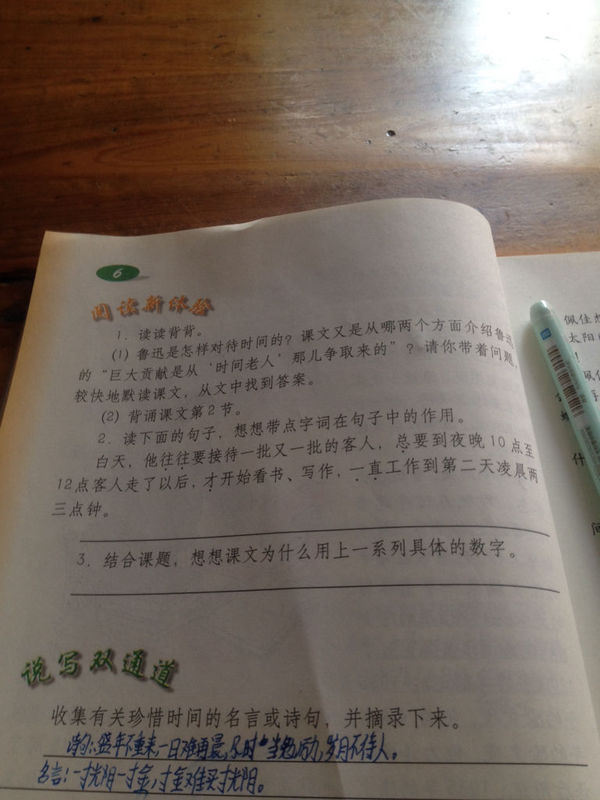 6
阅读新体验
1．读读背背。
(1) 鲁迅是怎样对待时间的？课文又是从哪两个方面介绍鲁迅
的“巨大贡献是从‘时间老人’那儿争取来的”？请你带着问题，
较快地默读课文，从文中找到答案。
(2) 背诵课文第2节。
2．读下面的句子，想想带点字词在句子中的作用。
白天，他往往要接待一批又一批的客人，总要到夜晚10点至
12点客人走了以后，才开始看书、写作，一直工作到第二天凌晨两
三点钟。
3．结合课题，想想课文为什么用上一系列具体的数字。
说写双通道
收集有关珍惜时间的名言或诗句，并摘录下来。
诗句：盛年不重来，一日难再晨，及时当勉励，岁月不待人。
名言：一寸光阴一寸金，寸金难买寸光阴。
佩佳
太阳
！
什